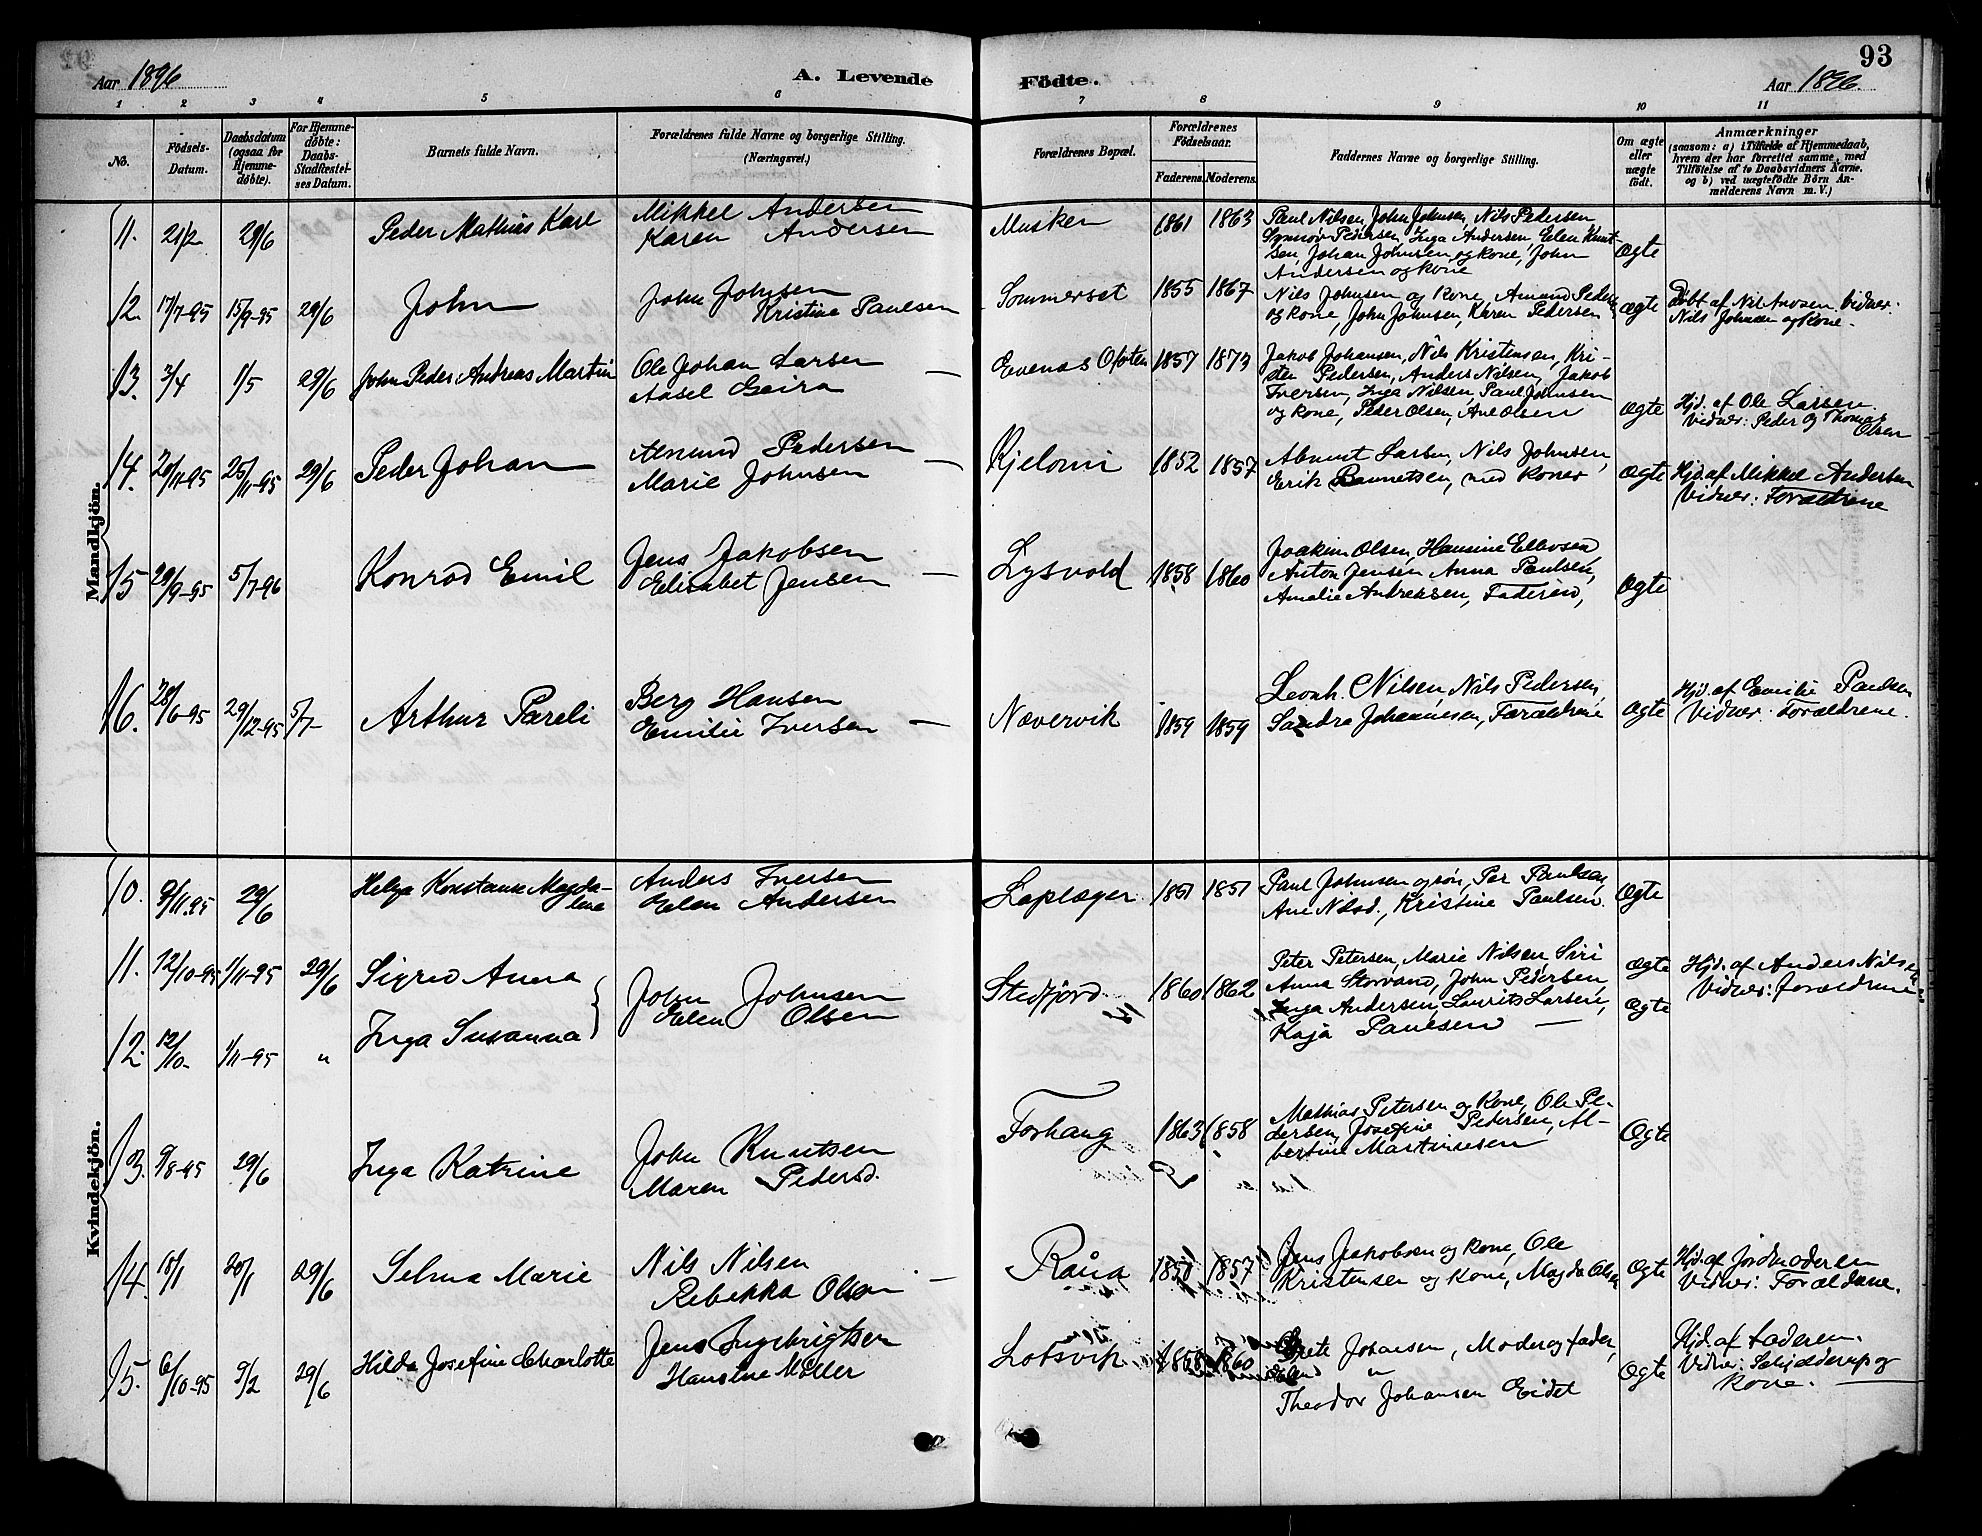 Aar 1896
A. Levende
Födte.
93
Aar 1896.
1 2 3 4 5 6 7 8 9 10 11
No.
Födsels-
Datum.
Daabsdatum
(ogsaa for
Hjemme-
døbte).
For Hjemme-
døbte:
Daabs-
Stadfæstel-
ses Datum.
Barnets fulde Navn.
Forældrenes fulde Navne og borgerlige Stilling.
(Næringsvei.)
Forældrenes Bopæl.
Forældrenes
Födselsaar.
Faderens. Moderens.
Faddernes Navne og borgerlige Stilling.
Om ægte
eller
uægte
født.
Anmærkninger
(saasom: a) i Tilfælde af Hjemmedaab,
hvem der har forrettet samme, med
Tilføielse af to Daabsvidners Navne.
og b) ved uægtefødte Börn An-
melderens Navn m. V.)
Mandkjön.
11. 21/2 29/6 Peder Mathias Karl
Mikkel Andersen
Karen Andersen
Musken 1861 1863
Paul Nilsen, John Johnsen, Nils Pedersen
Pedersen, Inga Andersen, Elen Knut-
sen, Johan Johnsen og kone, John
Andersen og kone
Ægte
12. 17/7-95 15/9-95 29/6 John
John Johnsen
Kristine Paulsen
Sommerset 1855 1867
Nils Johnsen og Kone, Amund Peders
og kone, John Johnsen, Karen Pedersen
Ægte
Døbt af Vidner:
Nils Johnsen og Kone.
13. 3/4 1/5 29/6 John Peder Andreas Martin
Ole Johan Larsen
Aasel Geira —
Evenes Ofoten 1857 1873
Jakob Johansen, Nils Kristensen, Kri-
Pedersen, Anders Nilsen, Jakob
Iversen, Inga Nilsen, Paul Johnsen
og kone, Peder Olsen, Ane Olsen
Ægte
Hjd. af Ole Larsen.
Vidner: Peder og Thomas
Olsen
14. 20/11-95 25/11-95 29/6 Peder Johan
Amund Pedersen
Marie Johnsen —
Kjelvmi 1852 1857
Larsen, Nils Johnsen,
Erik med Koner
Ægte
Hjd. af Mikkel Andersen
Vidner: Forældrene
15 29/9-95 5/7-96 Konrad Emil
Jens Jakobsen
Elisabet Jensen —
Lysvold 1858 1860
Joakim Olsen, Hansine Ellevsen
Anton Jensen Anna Paulsen,
Amalie Andreasen, Faderen,
Ægte
16. 28/6-95 29/12-95 5/7- Arthur Pareli
Berg Hansen
Emilie Iversen —
Nævervik 1859 1859
Leonh. Nilsen, Nils Pedersen,
Sandra Johannesen, Forældrene
Ægte
Hjd. af Emilie Paulsen
Vidner: Forældrene.
Kvindekjön.
10. 9/11.95 29/6 Helga Konstanse Magda-
lene
Anders Iversen
Elen Andersen
Laplæger 1851 1851
Paul Johnsen og søn, Per Paulsen,
Ane Nilsd., Kristine Paulsen.
Ægte
11. 12/10-95 1/11-95 29/6 Sigrid Anna
12. 12/10- 1/11-95 " Inga Susanna
John Johnsen
Elen Olsen
Stedfjord 1860 1862
Peter Petersen, Marie Nilsen, Siri
Anna Storvand, John Pedersen
Inga Andersen, Laurits Larsen,
Kaja Paulsen —
Ægte
Ægte
Hjd. af Anders Nilsen
Vidner: Forældrene
13. 9/8-95 29/6 Inga Katrine
John Knutsen
Maren Pedersd.
Forhang 1863 1858
Mathias Petersen og Kone, Ole Pe-
dersen, Josefine Pedersen, Al-
bertine Martinusen
Ægte
14. 15/1 20/1 29/6 Selma Marie
Nils Nilsen
Rebekka Olsen —
Råna 1857
Jens Jakobsen og kone, Ole
Kristensen og Kone, Magda Olsen
Ægte
Hjd. af Jordmoderen
Vidner: Forældrene.
15. 6/10-95 9/2 29/6 Hilda Josefine Charlotte
Jens Ingebrigtsen
Hansine Möller
Lotsvik 1868 1860
Grete Johansen, Moder og fader,
"
Theodor Johansen Eidet
Ægte
Hjd. af Faderen.
Vidner: Schjelderup og
Kone.